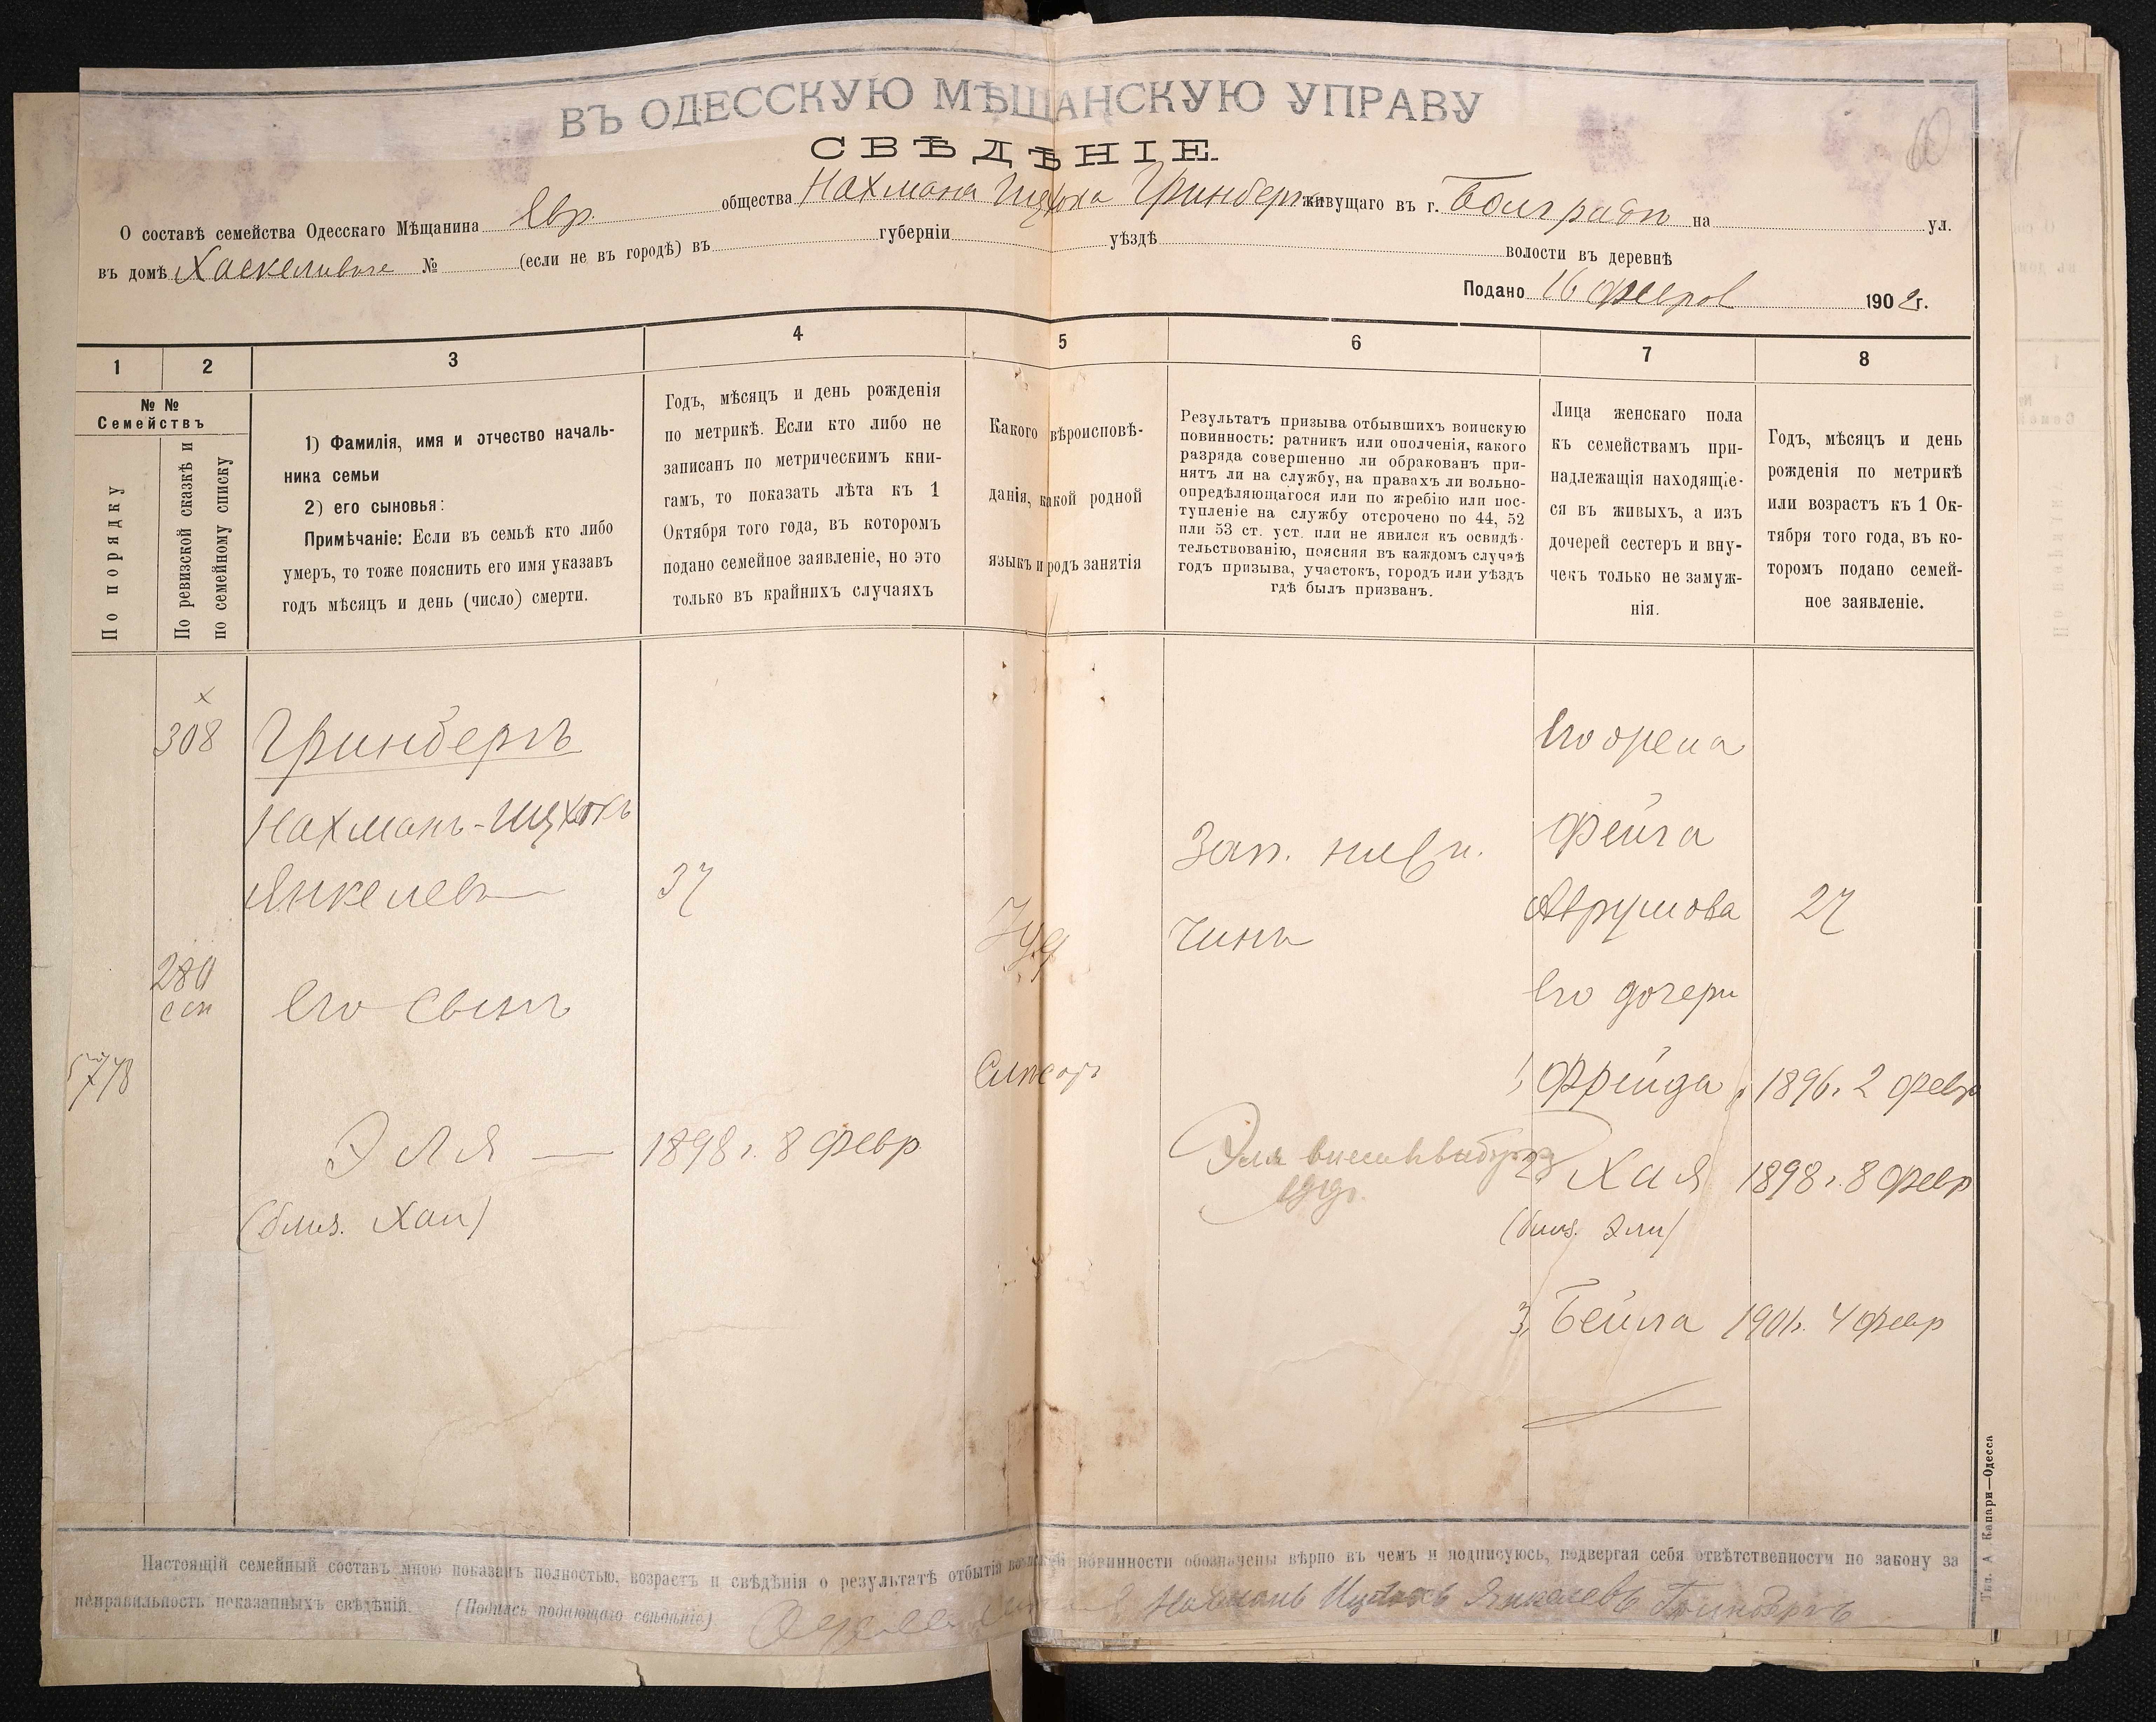 ВЪ ОДЕССКУЮ МѢЩАНСКУЮ УПРАВУ
СВѢДѢНІЕ.
О составѣ семейства Одесскаго Мѣщанина Евр. общества Нахмана Ицхока Гринберга живущаго въ г. Болградѣ на ул.
въ домѣ № (если не въ городѣ) въ губерніи уѣздѣ волости въ деревнѣ
Подано 16 феврал 1902 г.
1 2 3 4 5 6 7 8
№ №
Семействъ
По порядку
По ревизской сказкѣ и
по семейному списку
1) Фамилія, имя и отчество началь-
ника семьи
2) его сыновья:
Примѣчаніе: Если въ семьѣ кто либо
умеръ, то тоже пояснить его имя указавъ
годъ мѣсяцъ и день (число) смерти.
Годъ, мѣсяцъ и день рожденія
по метрикѣ. Если кто либо не
записанъ по метрическимъ кни-
гамъ, то показать лѣта къ 1
Октября того года, въ которомъ
подано семейное заявленіе, но это
только въ крайнихъ случаяхъ
Какого вѣроисповѣ-
данія, какой родной
языкъ и родъ занятія
Результатъ призыва отбывшихъ воинскую
повинность: ратникъ или ополченія, какого
разряда совершенно ли обракованъ при-
нятъ ли на службу, на правахъ ли вольно-
опредѣляющагося или по жребію или пос-
тупленіе на службу отсрочено по 44, 52
или 53 ст. уст. или не явился къ освидѣ-
тельствованію, поясняя въ каждомъ случаѣ
годъ призыва, участокъ, городъ или уѣздъ
гдѣ былъ призванъ.
Лица женскаго пола
къ семействамъ при-
надлежащія находящіе-
ся въ живыхъ, а изъ
дочерей сестеръ и вну-
чекъ только не замуж-
нія.
Годъ, мѣсяцъ и день
рожденія по метрикѣ
или возрастъ къ 1 Ок-
тября того года, въ ко-
торомъ подано семей-
ное заявленіе.
308 Гринбергъ
Нахманъ-Ицхокъ
Янкелевъ 37
Іуд
Зап. нижн.
чинъ
Его жена
Фейга
Аврумова 27
280
сп
Его сынъ
Его дочери
5778
Столяръ
1, Фрейда 1896 г. 2 февр
Эля — 1898 г. 8 февр
(близ. Хаи)
Эля
2, Хая 1898 г. 8 февр
(близ. Эли)
3, Бейла 1901 г. 4 февр
Настоящій семейный составъ мною показанъ полностью, возрастъ и свѣдѣнія о результатѣ отбытія воинской повинности обозначены вѣрно въ чемъ и подписуюсь, подвергая себя отвѣтственности по закону за
неправильность показанныхъ свѣдѣній. (Подпись подающаго свѣдѣніе) Нахманъ Ицхокъ Янкелевъ Гринбергъ
Тип. А Капари—Одесса